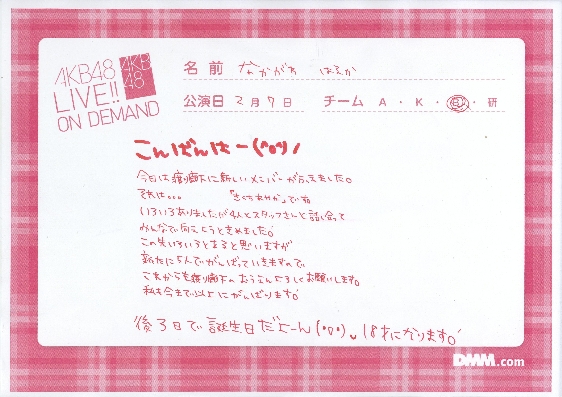 AKB48
LIVE!!
ON DEMAND
AKB
48
名前 なかがわ はるか
公演日 2月7日 チーム A・K・B・研
こんばんはー(°o°)ノ
今日は渡り廊下に新しいメンバーがふえました。
それは。。。 「きくちあやか」です
いろいろありましたが4人とスタッフさんと話し合って
みんなで向えようときめました。
この先いろいろとあると思いますが
新たに5人でがんばっていきますので
これからも渡り廊下のおうえんよろしくお願いします。
私も今まで以上にがんばります。
後3日で誕生日だよーん(°o°)。18才になります。
DMM.com